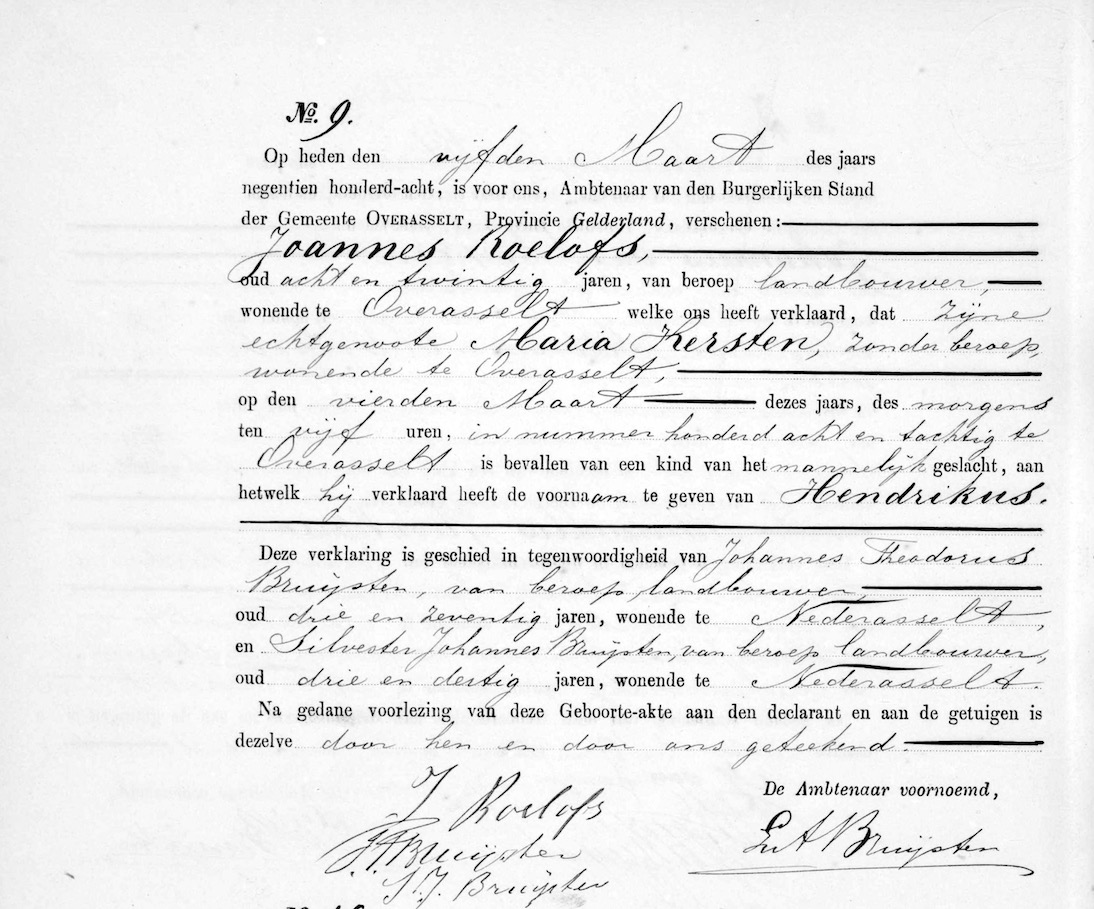 No. 9.
Op heden den vijfden Maart des jaars
negentien honderd-acht, is voor ons, Ambtenaar van den Burgerlijken Stand
der Gemeente OVERASSELT, Provincie Gelderland, verschenen:
Joannes Roelofs,
oud acht en twintig jaren, van beroep landbouwer,
wonende te Overasselt welke ons heeft verklaard, dat zijne
echtgenoote Maria Kersten, zonder beroep,
wonende te Overasselt,
op den vierden Maart dezes jaars, des morgens
ten vijf uren, in nummer honderd acht en tachtig te
Overasselt is bevallen van een kind van het mannelijk geslacht, aan
hetwelk hij verklaard heeft de voornaam te geven van Hendrikus.
Deze verklaring is geschied in tegenwoordigheid van Johannes Theodorus
Bruijsten, van beroep landbouwer,
oud drie en zeventig jaren, wonende te Nederasselt,
en Silvester Johannes Bruijsten, van beroep landbouwer,
oud drie en dertig jaren, wonende te Nederasselt.
Na gedane voorlezing van deze Geboorte-akte aan den declarant en aan de getuigen is
dezelve door hen en door ons geteekend.
De Ambtenaar voornoemd,
J Roelofs
J.T. Bruijsten
Bruijsten
S.J. Bruijsten